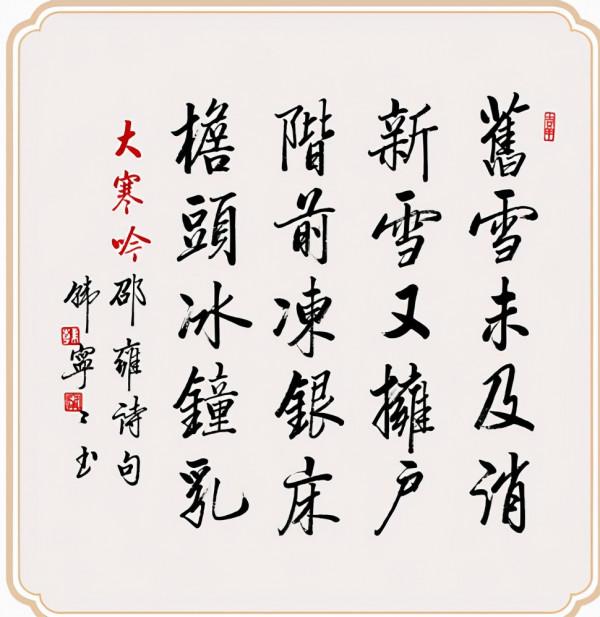 舊雪未及消
新雪又擁戶
階前凍銀床
檐頭冰鐘乳
大寒吟 邵雍詩句
寧々书